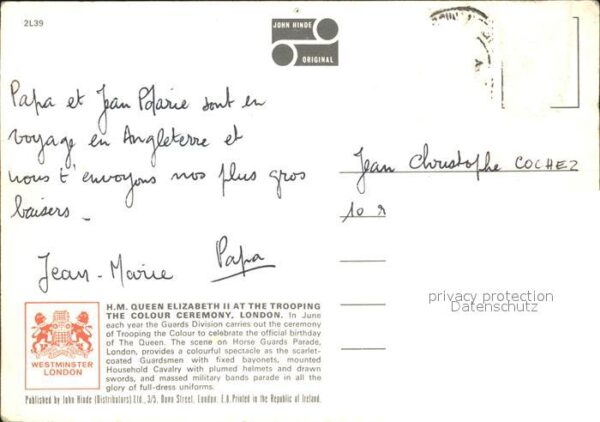 2L39
JOHN HINDE
ORIGINAL
Papa et Jean Marie sont en
voyage en Angleterre et
nous t'envoyons nos plus gros
baisers -
Jean-Marie Papa
Jean Christophe COCHEZ
10 R
privacy protection
Datenschutz
WESTMINSTER
LONDON
H.M. QUEEN ELIZABETH II AT THE TROOPING
THE COLOUR CEREMONY, LONDON. In June
each year the Guards Division carries out the ceremony
of Trooping the Colour to celebrate the official birthday
of The Queen. The scene on Horse Guards Parade,
London, provides a colourful spectacle as the scarlet-
coated Guardsmen with fixed bayonets, mounted
Household Cavalry with plumed helmets and drawn
swords, and massed military bands parade in all the
glory of full-dress uniforms.
Published by John Hinde (Distributors) Ltd., 3/5, Dunn Street, London. E.8. Printed in the Republic of Ireland.